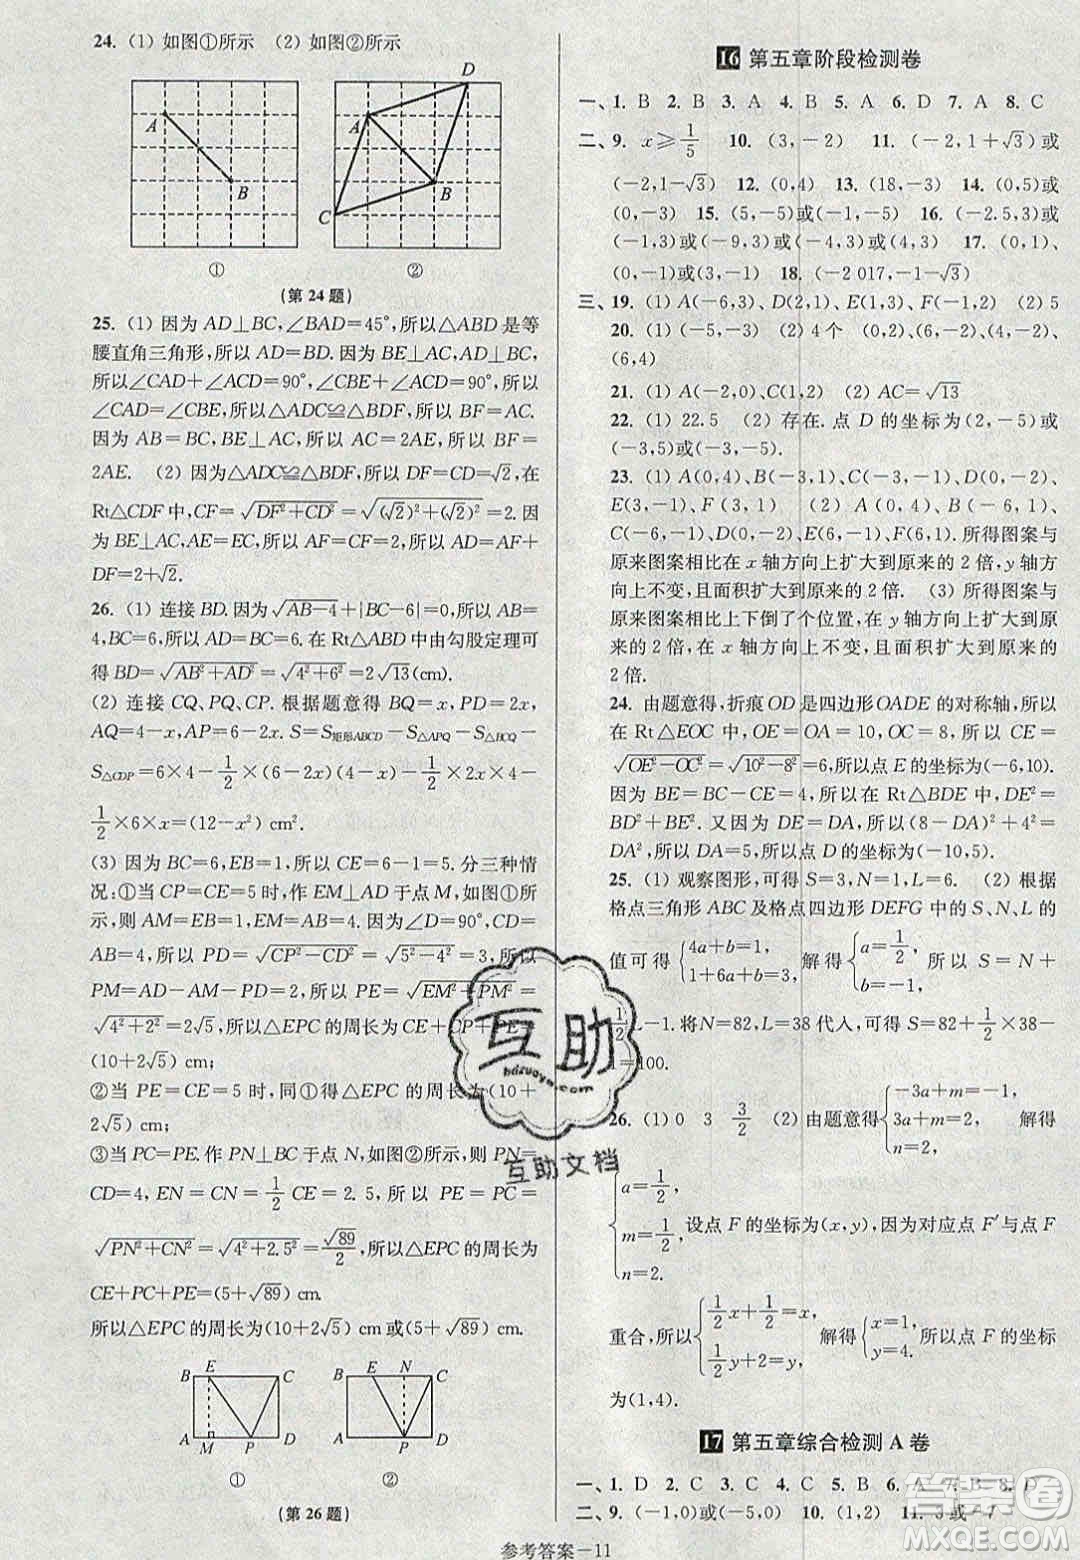 24. (1) 如图①所示 (2) 如图②所示
A
B
D
A
B
C
① ②
(第 24 题)
25. (1) 因为 AD⊥BC,∠BAD=45°,所以△ABD 是等
腰直角三角形,所以 AD=BD. 因为 BE⊥AC,AD⊥BC,
所以∠CAD+∠ACD=90°,∠CBE+∠ACD=90°,所以
∠CAD=∠CBE,所以△ADC≌△BDF,所以 BF=AC.
因为 AB=BC,BE⊥AC,所以 AC=2AE,所以 BF=
2AE. (2) 因为△ADC≌△BDF,所以 DF=CD=√2,在
Rt△CDF 中,CF=√(DF²+CD²)=√((√2)²+(√2)²)=2. 因
为 BE⊥AC,AE=EC,所以 AF=CF=2,所以 AD=AF+
DF=2+√2.
26. (1) 连接 BD. 因为√(AB-4)+|BC-6|=0,所以 AB=
4,BC=6,所以 AD=BC=6. 在 Rt△ABD 中由勾股定理可
得 BD=√(AB²+AD²)=√(4²+6²)=2√13(cm).
(2) 连接 CQ、PQ、CP. 根据题意得 BQ=x,PD=2x,
AQ=4-x,AP=6-2x. S=S矩形ABCD-S△APQ-S△BCQ-
S△CDP=6×4-1/2×(6-2x)(4-x)-1/2×2x×4-
1/2×6×x=(12-x²) cm².
(3) 因为 BC=6,EB=1,所以 CE=6-1=5. 分三种情
况:①当 CP=CE=5 时,作 EM⊥AD 于点 M,如图①所
示,则 AM=EB=1,EM=AB=4. 因为∠D=90°,CD=
AB=4,所以 PD=√(CP²-CD²)=√(5²-4²)=3,所以
PM=AD-AM-PD=2,所以 PE=√(EM²+PM²)=
√(4²+2²)=2√5,所以△EPC 的周长为 CE+CP+PE=
(10+2√5) cm;
②当 PE=CE=5 时,同①得△EPC 的周长为(10+
2√5) cm;
③当 PC=PE. 作 PN⊥BC 于点 N,如图②所示,则 PN=
CD=4,EN=CN=1/2 CE=2.5,所以 PE=PC=
√(PN²+CN²)=√(4²+2.5²)=√89/2,所以△EPC 的周长为
CE+PC+PE=(5+√89) cm.
所以△EPC 的周长为(10+2√5) cm或(5+√89) cm.
B E C
A M P D
B E N C
A P D
① ②
(第 26 题)
16 第五章阶段检测卷
一、1. B 2. B 3. A 4. B 5. C 6. D 7. A 8. C
二、9. x≥1/5 10. (3,-2) 11. (-2,1+√3)或
(-2,1-√3) 12. (0,4) 13. (18,-3) 14. (0,5)或
(0,-3) 15. (5,-5)或(-1,-5) 16. (-2.5,3)或
(-1,3)或(-9,3)或(-4,3)或(4,3) 17. (0,1)、
(0,-1)或(1,-1) 18. (-2 017,-1-√3)
三、19. (1) A(-6,3)、D(2,1)、E(1,3)、F(-1,3) (2) 5
20. (1) (-5,-3) (2) 4 个 (0,2)、(6,-2)、(4,-2)、
(6,4)
21. (1) A(-2,0)、C(1,2) (2) AC=√13
22. (1) 22.5 (2) 存在. 点 D 的坐标为(2,-5)或
(-3,5)或(-3,-5).
23. (1) A(0,4)、B(-3,1)、C(-3,-1)、D(0,-2)、
E(3,-1)、F(3,1) (2) A(0,4)、B(-6,1)、
C(-6,-1)、D(0,-2)、E(6,-1)、F(6,1). 所得图案与
原来图案相比在 x 轴方向上扩大到原来的 2 倍,y 轴方
向上不变,且面积扩大到原来的 2 倍. (3) 所得图案与
原来图案相比上下倒了个位置,在 y 轴方向上扩大到原
来的 2 倍,x 轴方向上不变,且面积扩大到原来的
2 倍.
24. 由题意得,折痕 OD 是四边形 OADE 的对称轴,所以
在 Rt△EOC 中,OE=OA=10,OC=8,所以 CE=
√(OE²-OC²)=√(10²-8²)=6,所以点 E 的坐标为(-6,10).
因为 BE=BC-CE=4,所以在 Rt△BDE 中,DE²=
BD²+BE². 又因为 DE=DA,所以(8-DA)²+4²=
DA²,所以 DA=5,所以点 D 的坐标为(-10,5).
25. (1) 观察图形,可得 S=3,N=1,L=6. (2) 根据
格点三角形 ABC 及格点四边形 DEFG 中的 S、N、L 的
值可得{4a+b=1, 1+6a+b=3, 解得{a=1/2, b=-1. 所以 S=N+
1/2 L-1. 将N=82,L=38 代入,可得 S=82+1/2×38-
1=100.
26. (1) 0 3 3/2 (2) 由题意得{-3a+m=-1, 3a+m=2, n=2. 解得
{a=1/2, m=1/2, n=2. 设点 F 的坐标为(x,y),因为对应点 F′与点 F
重合,所以{1/2x+1/2=x, 1/2y+2=y. 解得{x=1, y=4. 所以点 F 的坐标
为(1,4).
17 第五章综合检测 A 卷
一、1. D 2. C 3. C 4. C 5. B 6. A 7. B 8. D
二、9. (-1,0)或(-5,0) 10. (1,2) 11. 3或-7
互助
bdzuoye.com
互助文档
答案圈
MXQE.COM
参考答案-11